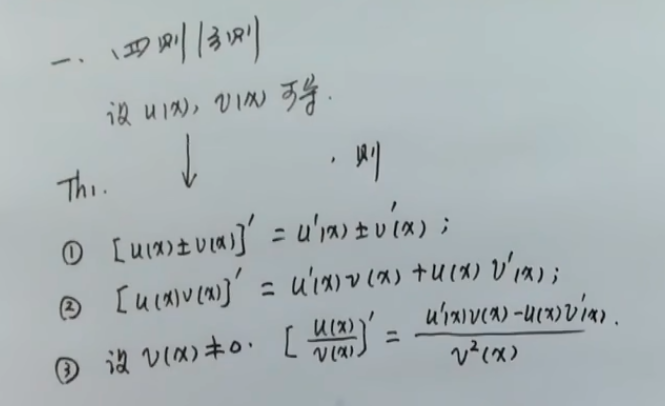 一、四则求导
设 u(x), v(x) 可导.
↓ , 则
Th1.
① [u(x)±v(x)]' = u'(x)±v'(x);
② [u(x)v(x)]' = u'(x)v(x)+u(x)v'(x);
③ 设 v(x)≠0. [u(x)/v(x)]' = (u'(x)v(x)-u(x)v'(x))/v²(x).